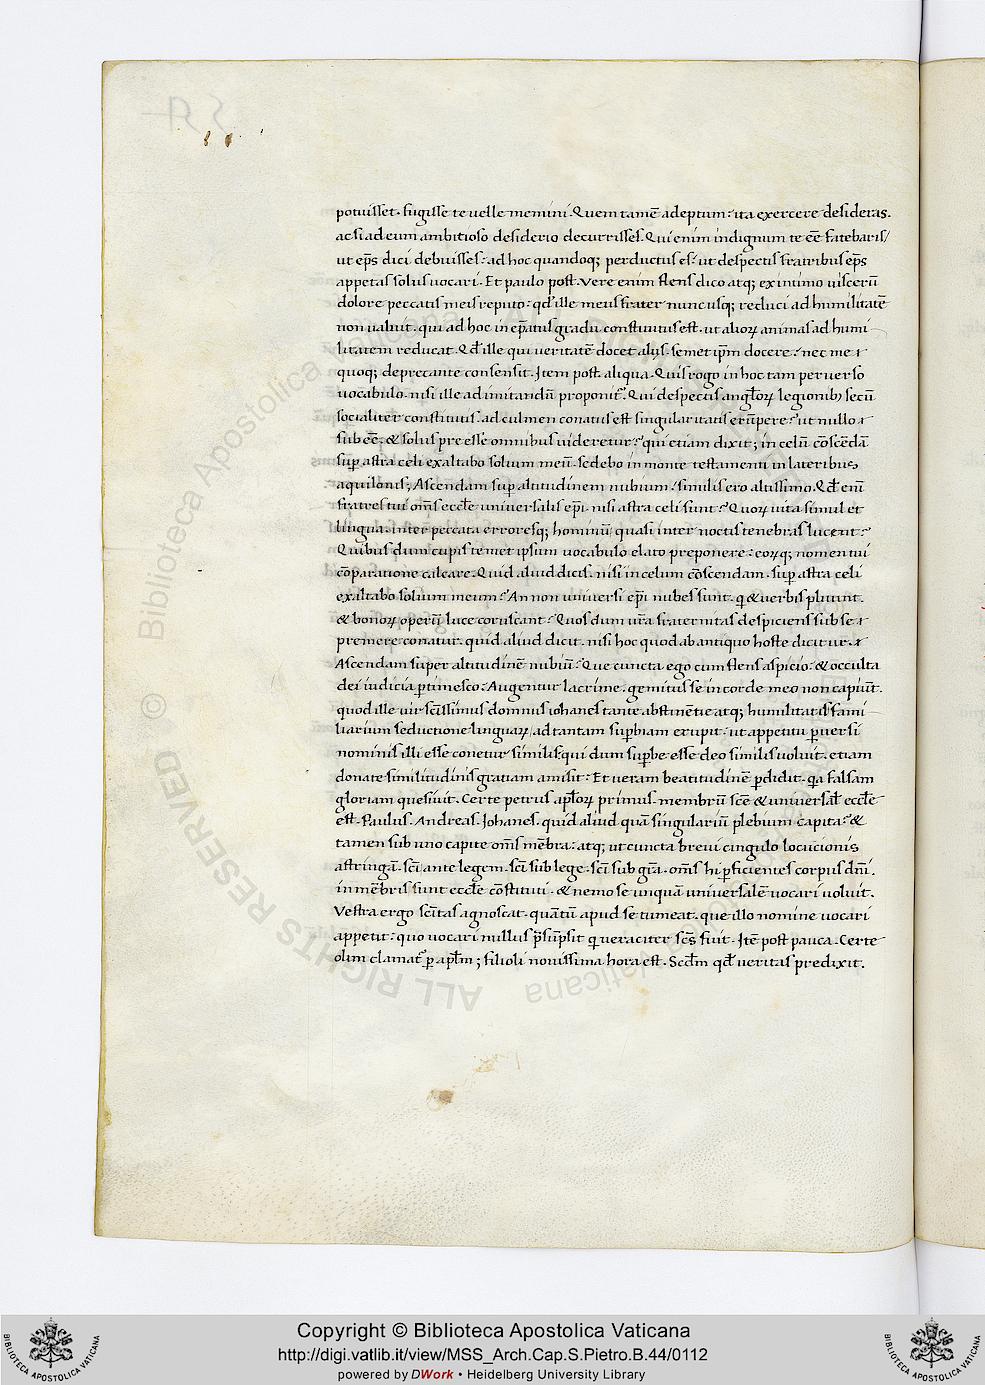 potuisset. fugisse te uelle memini. Quem tamē adeptum: ita exercere desideras.
ac si ad eum ambitioso desiderio decurrisses. Qui enim indignum te eē fatebaris/
ut ep̄s dici debuisses: ad hoc quandoq; perductus es: ut despectis fratribus ep̄s
appetas solus uocari. Et paulo post. Vere enim flens dico atq; ex intimo uiscerū
dolore peccatis meis reputo: qđ ille meus frater nunc usq; reduci ad humilitatē
non ualuit. qui ad hoc in ep̄atus gradu constitutus est. ut alioꝝ animas ad humi
litatem reducat. Qđ ille qui ueritatē docet alijs. semet ip̄m docere: nec me
quoq; deprecante consensit. Item post aliqua. Quis rogo in hoc tam peruerso
uocabulo. nisi ille ad imitandū proponit̃. Qui despectis angl̃oꝝ legionib; secū
socialiter constitutis. ad culmen conatus est singularitatis erūpere: ut nullo
sub eē. & solus pre esse omnibus uideretur: qui etiam dixit; in celū cōscēdā
suꝑ astra celi exaltabo solium meū. sedebo in monte testamenti in lateribus
aquilonis; Ascendam suꝑ altitudinem nubium: similis ero altissimo. Qđ enī
fratres tui om̄s eccl̄e uniuersalis ep̄i. nisi astra celi sunt: Quoꝝ uita simul et
lingua. inter peccata erroresq; hominū. quasi inter noctis tenebras lucent:
Quibus dum cupis temet ipsum uocabulo elato preponere: eoꝝq; nomen tui
cōparatione calcare. Quid aliud dicis. nisi in celum cōscendam. suꝑ astra celi
exaltabo solium meum: An non uniuersi ep̄i nubes sunt. q̇ & uerbis pluunt.
& bonoꝝ operū luce coruscant: Quos dum ūra fraternitas despiciens sub se
premere conatur. quid aliud dicit. nisi hoc quod ab antiquo hoste dicitur.
Ascendam super altitudinē nubiū: Que cuncta ego cum flens aspicio: & occulta
dei iudicia ꝑtimesco: Augentur lacrime. gemitus se in corde meo non capiūt.
quod ille uir scītissimus domnus iohanes tante abstinētie atq; humilitatis fami
liarium seductione linguaꝝ/ ad tantam suꝑbiam erupit: ut appetitu ꝑuersi
nominis illi esse conetur similis: qui dum suꝑbe esse deo similis uoluit. etiam
donate similitudinis gratiam amisit: Et ueram beatitudinē ꝑdidit. qa falsam
gloriam quesiuit. Certe petrus apl̄oꝝ primus. membrū scē & uniuersal̃ eccl̄e
est. Paulus. Andreas. Iohanes. quid aliud quā singulariū plebium capita: &
tamen sub uno capite om̄s mēbra: atq; ut cuncta breui cingulo locucionis
astringā. scī ante legem. scī sub lege. scī sub grā. om̄s hi ꝑficientes corpus dn̄i.
in mēbris sunt eccl̄e cōstituti. & nemo se unquā uniuersalē uocari uoluit.
Vestra ergo scītas agnoscat. quātū apud se tumeat. que illo nomine uocari
appetit: quo uocari nullus p̄sūpsit q ueraciter scs̄ fuit. Itē post pauca. Certe
olim clamat̃ ꝑ apl̄m; filioli nouissima hora est. Scđm qđ ueritas predixit.
Copyright © Biblioteca Apostolica Vaticana
http://digi.vatlib.it/view/MSS_Arch.Cap.S.Pietro.B.44/0112
powered by DWork • Heidelberg University Library